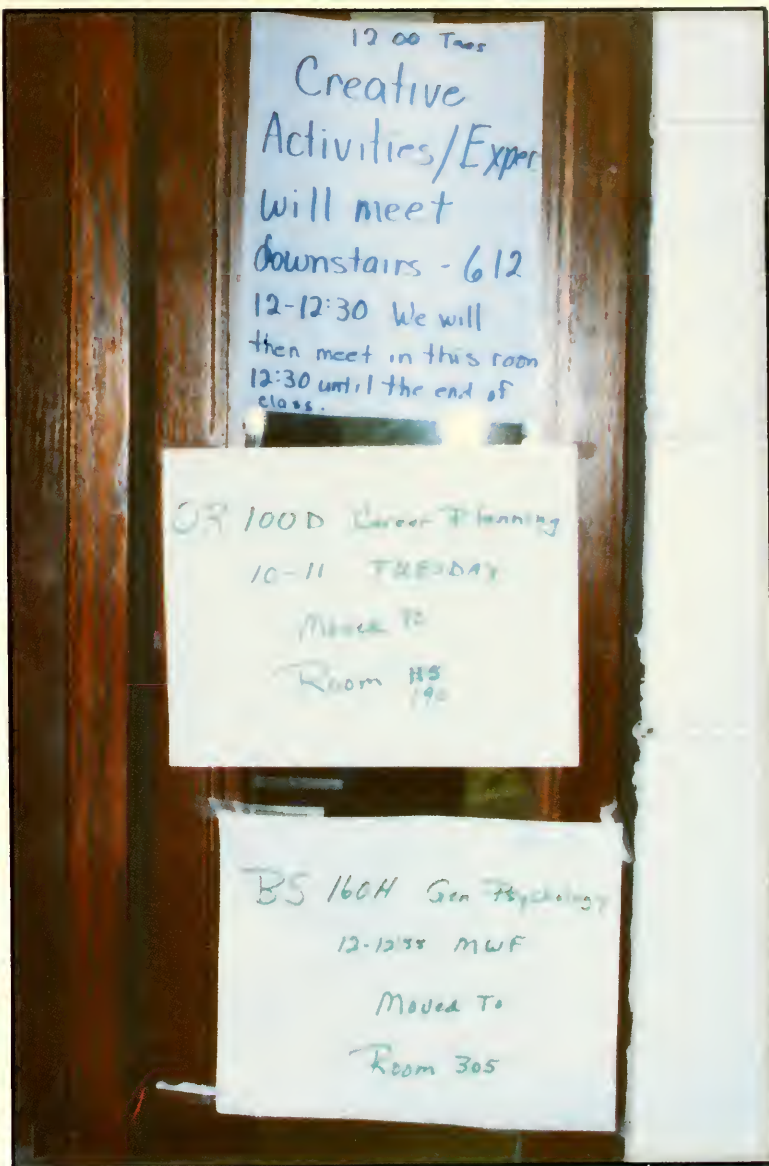 12 00 Tues
Creative
Activities/Exper
will meet
downstairs - 612
12-12:30 We will
then meet in this room
12:30 until the end of
class.
OR 100D Career Planning
10-11 TUESDAY
Moved To
Room HS
190
BS 160H Gen Psychology
12-12:55 MWF
Moved To
Room 305